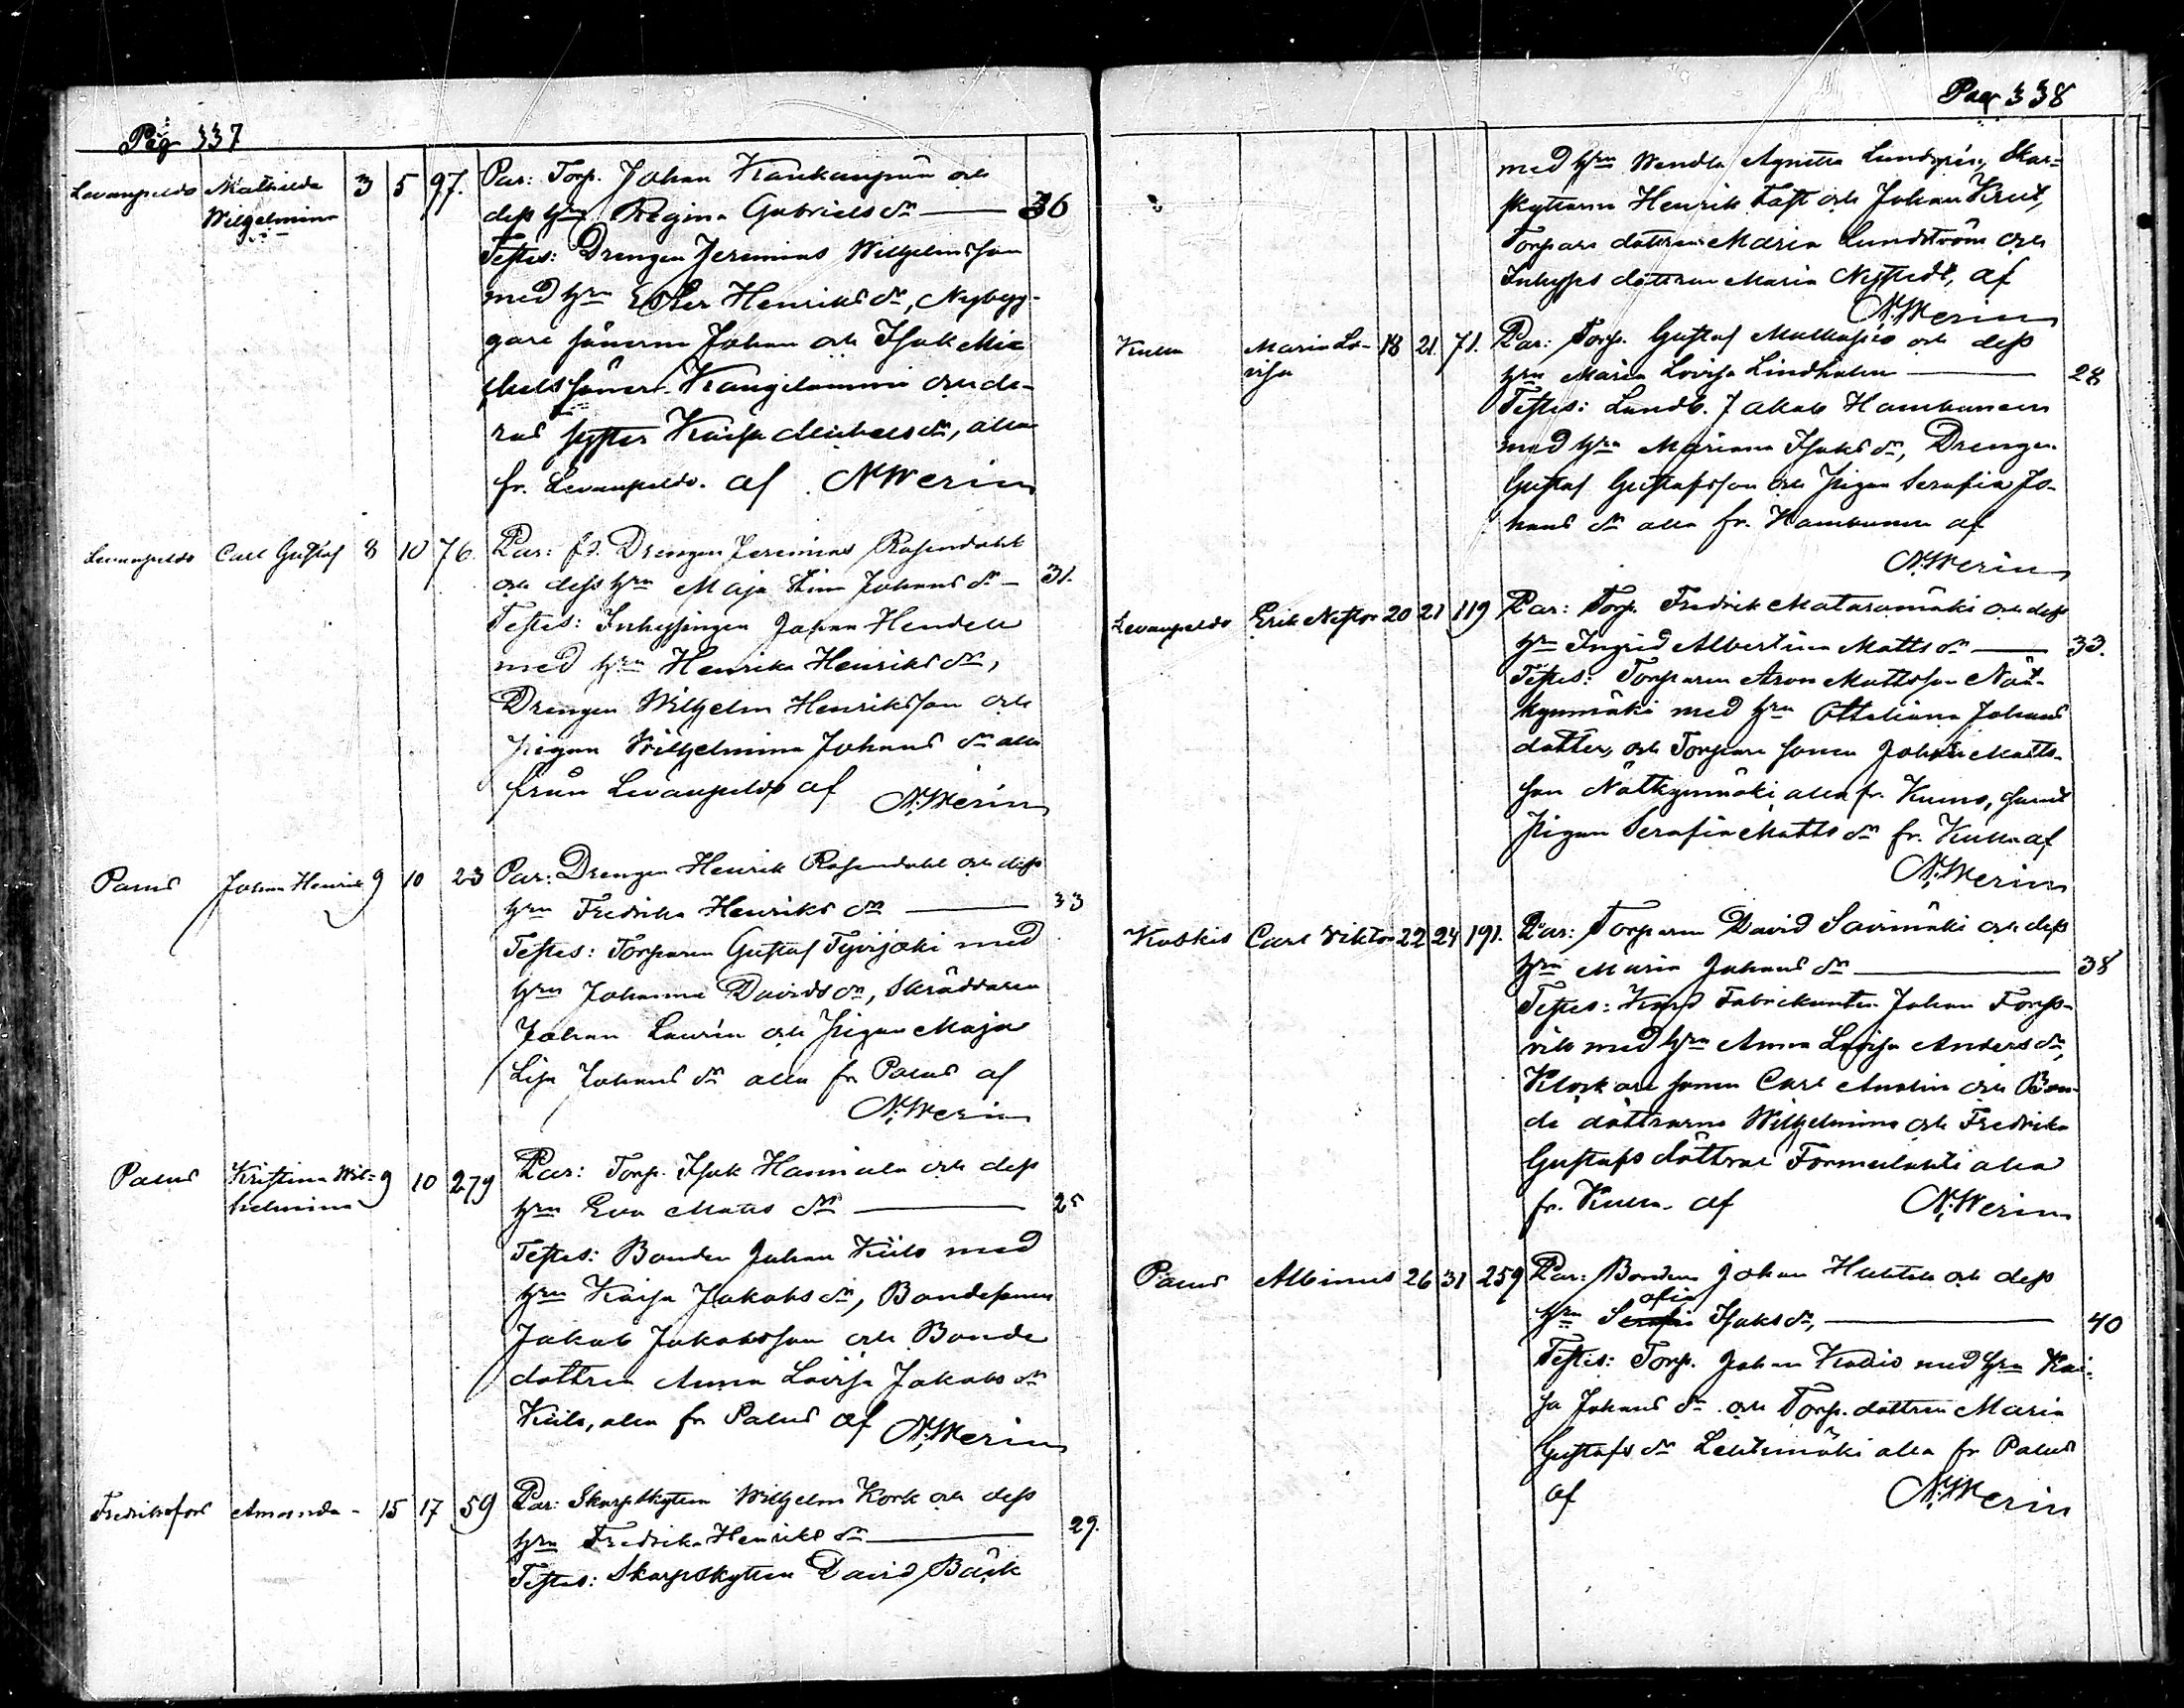 Pag 337
Levanpelds Mathilda 3 5 97. Par: Torp. Johan Kankaanpää och
Wilhelmina dess hru Regina Gabriels dr 36
Testes: Drengen Jeremias Wilhelmsson
med hru Ester Henriks dr, Nybyg-
gare sönerna Johan och Isak Mic
helssöner Kangilammi och de-
ras syster Kaisa Michels dr, alla
fr. Levanpelds. af N. Merin
Levanpelds Carl Gustaf 8 10 76. Par: fd. Drengen Jeremias Rosendahl
och dess hru Maja Stina Johans dr 31.
Testes: Inhysingen Johan Hendell
med hru Henrika Henriks dr,
Drengen Wilhelm Henriksson och
pigan Wilhelmina Johans dr alla
från Levanpelds af N. Merin
Palus Johan Henrik 9 10 23 Par: Drengen Henrik Rosendahl och dess
hru Fredrika Henriks dr 33
Testes: Torparen Gustaf Tyvijoki med
hru Johanna Davids dr, Skräddaren
Johan Laurén och Pigan Maja
Lisa Johans dr alla fr Palus af
N. Merin
Palus Kristina Wil- 9 10 279 Par: Torp. Isak Hannula och dess
helmina hru Eva Matts dr 25
Testes: Bonden Johan Kiils med
hru Kaisa Jakobs dr, Bondesonen
Jakob Jakobsson och Bonde
dottren Anna Lovisa Jakobs dr
Kiils, alla fr Palus af N. Merin
Fredriksfors Amanda - 15 17 59 Par: Skarpskytten Wilhelm Kork och dess
hru Fredrika Henriks dr 29.
Testes: Skarpskytten David Bäck
Pag 338
med hru Wendla Agnetta Lundgrén, Skar-
pskyttarne Henrik Fast och Johan Krut,
Torpare dottren Maria Lundström och
Inhyses dottren Maria Nystedt, af
N. Merin
Kullaa Maria Lo- 18 21. 71. Par: Torp. Gustaf och dess
visa hru Maria Lovisa Lindholm 28
Testes: Landb. Jakob Hambunen
med hru Mariana Isaks dr, Drengen
Gustaf Gustafsson och Pigan Serafia Jo-
hans dr alla fr. Hambunen af
N. Merin
Levanpelds Erik Nestor 20 21 119 Par: Torp. Fredrik Mataramäki och dess
hru Ingrid Albertina Matts dr 33.
Testes: Torparen Aron Mattsson Nät-
kynmäki med hru Ottiliana Johans
dotter, och Torpare sonen Johan Matts-
son Nätkynmäki alla fr. Kumo, samt
Pigan Serafia Matts dr fr. Kullaa af
N. Merin
Koskis Carl Viktor 22 24 191. Par: Torparen David Savimäki och dess
hru Maria Johans dr 38
Testes: Fabrikanten Johan Forss-
vik med hru Anna Lovisa Anders dr,
Klockare sonen Carl Analin och Bon-
de döttrarne Wilhelmina och Fredrika
Gustafs döttrar Formulahti alla
fr. Kullaa af N. Merin
Palus Albinus 26 31 259 Par: Bonden Johan Huhtala och dess
ofia
hru Serafia Isaks dr, 40
Testes: Torp. Johan Kallio med hru Kai-
sa Johans dr och Torp. dottren Maria
Gustafs dr Lehtimäki alla fr Palus
af N. Merin